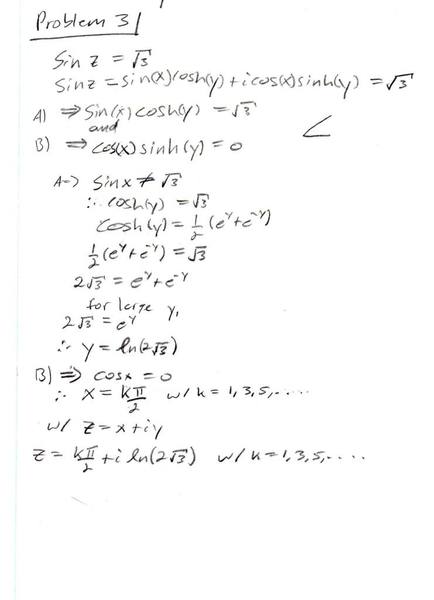 Problem 3
sin z = √3
sin z = sin(x)cosh(y) + i cos(x) sinh(y) = √3
A) ⇒ sin(x) cosh(y) = √3
and
B) ⇒ cos(x) sinh(y) = 0
A → sin x ≠ √3
∴ cosh(y) = √3
cosh(y) = 1/2 (e^y + e^-y)
1/2 (e^y + e^-y) = √3
2√3 = e^y + e^-y
for large y,
2√3 = e^y
∴ y = ln(2√3)
B) ⇒ cos x = 0
∴ x = kπ/2 w/ k = 1, 3, 5, ....
w/ z = x + iy
z = kπ/2 + i ln(2√3) w/ k = 1, 3, 5, ....